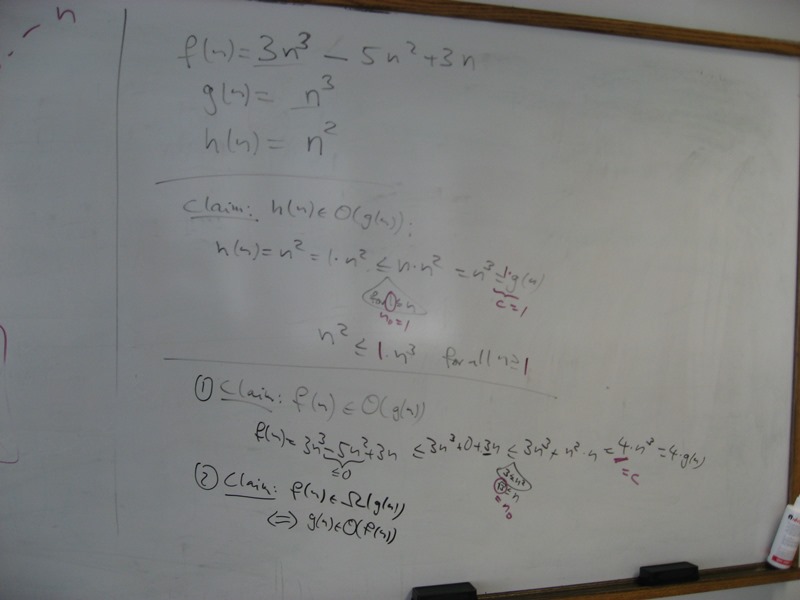 n
f(n) = 3n³ - 5n² + 3n
g(n) = n³
h(n) = n²
Claim: h(n) ∈ O(g(n)):
h(n) = n² = 1·n² ≤ n·n² = n³ = 1·g(n)
for 1 ≤ n
n₀ = 1
c = 1
n² ≤ 1·n³ for all n ≥ 1
① Claim: f(n) ∈ O(g(n))
f(n) = 3n³ - 5n² + 3n ≤ 3n³ + 0 + 3n ≤ 3n³ + n²·n = 4·n³ = 4·g(n)
≤ 0
3 ≤ n²
√3 ≤ n
= n₀
= c
② Claim: f(n) ∈ Ω(g(n))
⟺ g(n) ∈ O(f(n))